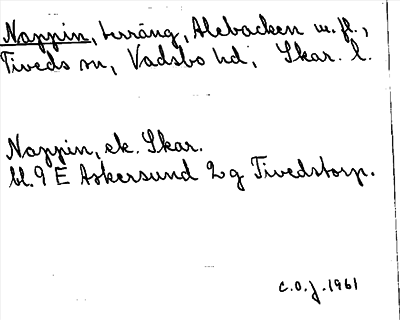 Nappin, terräng, Alebacken m. fl.,
Tiveds sn, Vadsbo hd, Skar. l.
Nappin, ek. Skar.
bl. 9 E Askersund 2 g Tivedstorp.
C.O.J. 1961